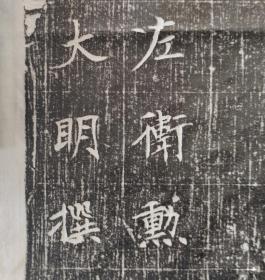 左衛勳
大明撰